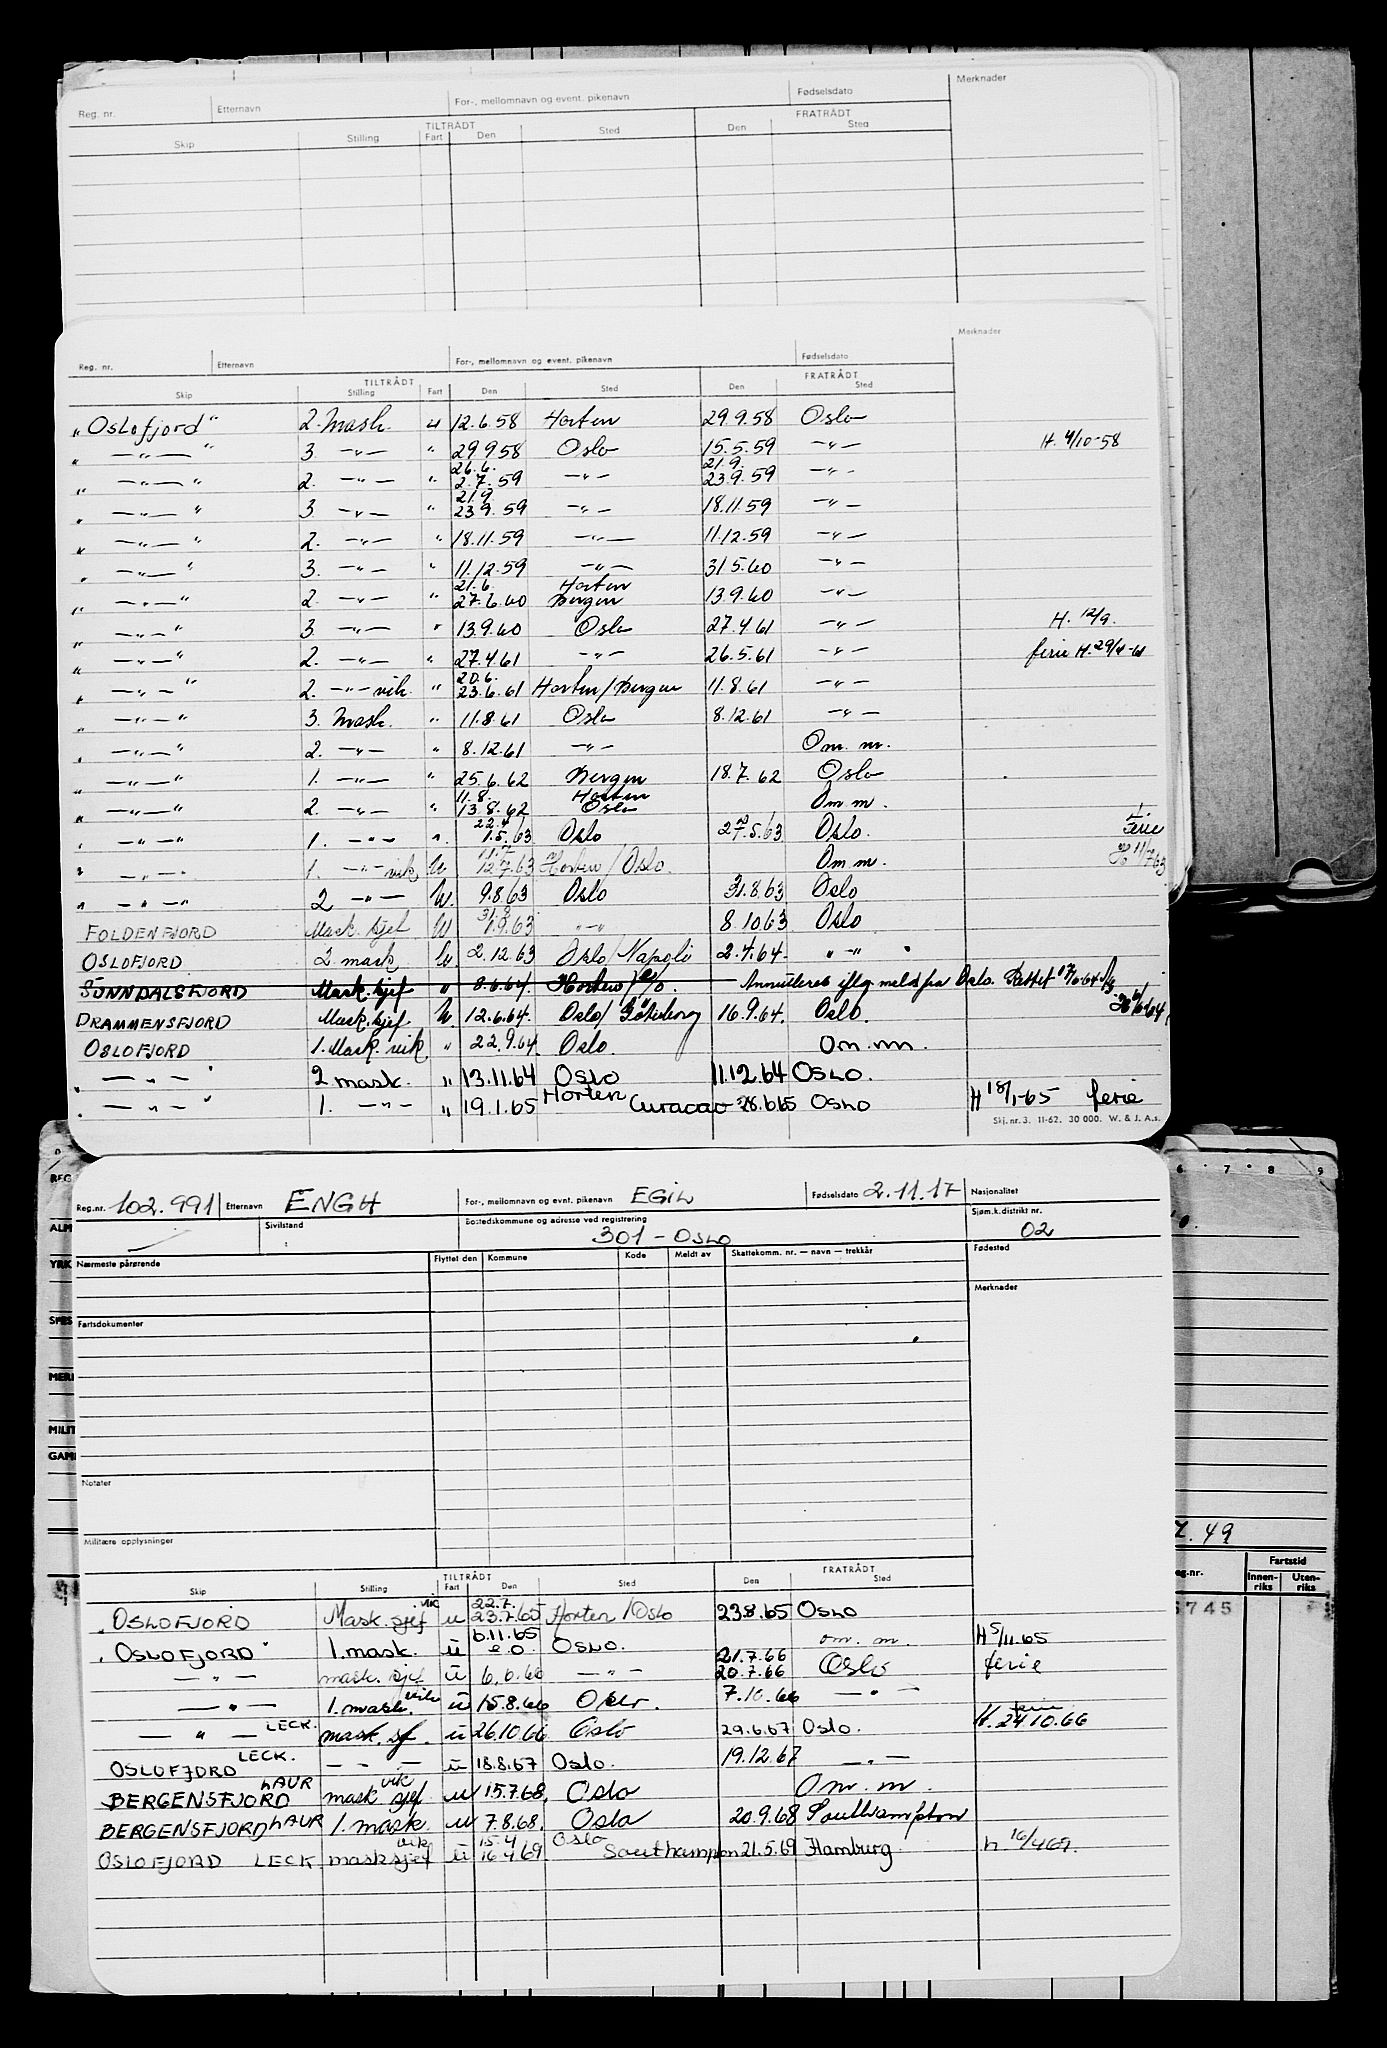 Reg. nr. Etternavn For-, mellomnavn og event. pikenavn Fødselsdato Merknader
TILTRÅDT FRATRÅDT
Skip Stilling Fart Den Sted Den Sted
Reg. nr. Etternavn For-, mellomnavn og event. pikenavn Fødselsdato Merknader
TILTRÅDT FRATRÅDT
Skip Stilling Fart Den Sted Den Sted
"Oslofjord" 2. Mask. u 12.6.58 Horten 29.9.58 Oslo
" —"— " 3 —"— " 29.9.58 Oslo 15.5.59 —"— H. 4/10-58
" —"— " 2. —"— " 26.6. 2.7.59 —"— 21.9. 23.9.59 —"—
" —"— " 3 —"— " 21.9. 23.9.59 —"— 18.11.59 —"—
" —"— " 2. —"— " 18.11.59 —"— 11.12.59 —"—
" —"— " 3. —"— " 11.12.59 —"— 31.5.60 —"—
" —"— " 2. —"— " 21.6. 27.6.60 Horten Bergen 13.9.60 —"—
" —"— " 3. —"— " 13.9.60 Oslo 27.4.61 —"— H. 12/9.
" —"— " 2. —"— " 27.4.61 —"— 26.5.61 —"— ferie H. 29/4-61
" —"— " 2. —"— vik. " 20.6. 23.6.61 Horten/Bergen 11.8.61 —"—
" —"— " 3. Mask. " 11.8.61 Oslo 8.12.61 —"—
" —"— " 2. —"— " 8.12.61 —"— Om. m.
" —"— " 1. —"— " 25.6.62 Bergen 18.7.62 Oslo
" —"— " 2. —"— " 11.8. 13.8.62 Horten Oslo Om m.
" —"— " 1. —"— " 22.4 1.5.63 Oslo 27.5.63 Oslo. Ferie
" —"— " 1. —"— vik U 11.7 12.7.63 Horten/Oslo. Om m. H 11/7 63
" —"— " 2 —"— U. 9.8.63 Oslo 31.8.63 Oslo
FOLDENFJORD Mask. sjef U 31.8. 1.9.63 "—" 8.10.63 Oslo
OSLOFJORD 2. mask U. 2.12.63 Oslo/Napoli 2.4.64. "—"
SUNNDALSFJORD Mask. sjef " 8.6.64. Horten/ — Annulleres iflg. meld fra Oslo. Rettet 17/6.64
DRAMMENSFJORD Mask. sjef U. 12.6.64. Oslo/Göteborg 16.9.64. Oslo.
OSLOFJORD 1. Mask. vik " 22.9.64. Oslo. Om. m.
" —"— " 2 mask. " 13.11.64 OSLO 11.12.64 OSLO.
" —"— " 1. —"— " 19.1.65 Horten Curacao 28.6.65 OSLO H 18/1-65 ferie
Skj. nr. 3. 11-62. 30 000. W. & J. A.s.
Reg.nr. 102.991 Etternavn ENGH For-, mellomnavn og evnt. pikenavn EGIL Fødselsdato 2.11.17 Nasjonalitet
Sivilstand Bostedskommune og adresse ved registrering 301 - OSLO Sjøm.k.distrikt nr. 02
Nærmeste pårørende Flyttet den Kommune Kode Meldt av Skattekomm. nr. — navn — trekkår Fødested
Merknader
Fartsdokumenter
Notater
Militære opplysninger
TILTRÅDT FRATRÅDT
Skip Stilling Fart Den Sted Den Sted
"OSLOFJORD Mask. sjef vik u 22.7. 23.7.65 Horten/Oslo 23.8.65 OSLO
"OSLOFJORD" 1. mask. u 6.11.65 e.o. OSLO. om. m. H 5/11.65
—"— mask. sjef u 6.6.66 —"— 21.7.66 20.7.66 Oslo ferie
—"— 1. mask. vik u 15.8.66 Oslo. 7.10.66 —"—
—"— LECK. mask. sj. u 26.10.66 Oslo 29.6.67 Oslo. H. 24.10.66 ferie
OSLOFJORD LECK. — " — u 18.8.67 Oslo. 19.12.67 —"—
BERGENSFJORD LAUR mask sjef vik u 15.7.68. Oslo Om. m.
BERGENSFJORD LAUR 1. mask. u 7.8.68. Oslo 20.9.68 Southampton
OSLOFJORD LECK masksjef vik u 15.4 16.4.69 Oslo Southampton 21.5.69 Hamburg h 16/4 69.
REG
ALM
YRK
SPES
MERK
MILIT
GAML
6 7 8 9
49
eg.-nr. Fartstid
Innen-riks Uten-riks
5745